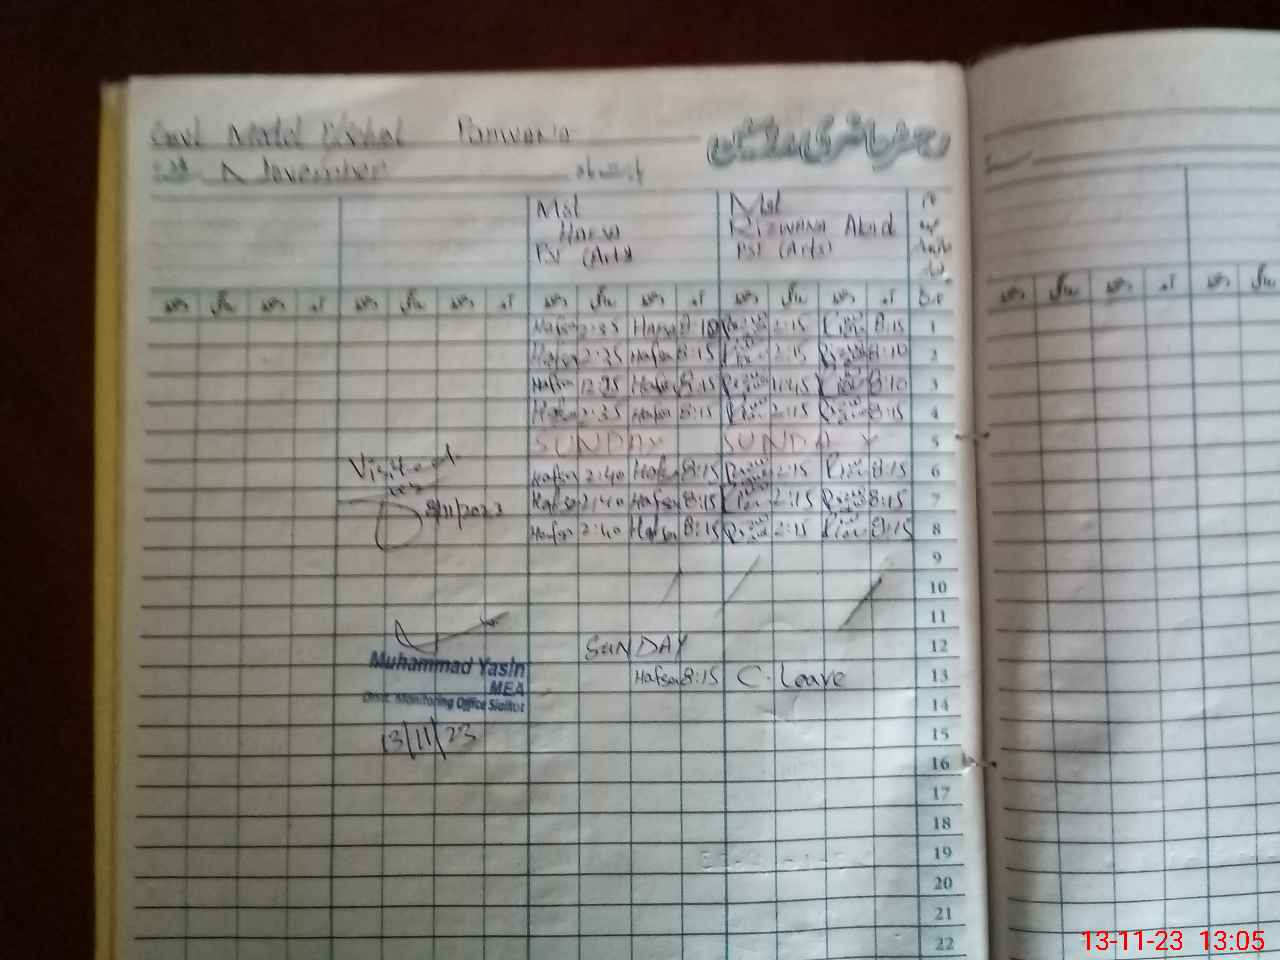 Govt Model P/School Panwana
رجسٹر حاضری مدرسین
November
بابت ماہ
Mst Hafsa PST (Arts)
Mst Rizwana Abid PST (Arts)
دستخط روانگی دستخط آمد دستخط روانگی دستخط آمد دستخط روانگی دستخط آمد دستخط روانگی دستخط آمد تاریخ
Hafsa 2:35 Hafsa 8:10 2:15 8:15 1
Hafsa 2:35 Hafsa 8:15 2:15 8:10 2
Hafsa 12:35 Hafsa 8:15 8:10 3
Hafsa 2:35 Hafsa 8:15 2:15 8:15 4
SUNDAY SUNDAY 5
Visited
Hafsa 2:40 Hafsa 8:15 2:15 8:15 6
8/11/2023
Hafsa 2:40 Hafsa 8:15 2:15 8:15 7
Hafsa 2:40 Hafsa 8:15 2:15 8:15 8
9
10
11
SUNDAY 12
Muhammad Yasin
MEA
Distt. Monitoring Office Sialkot
13/11/23
Hafsa 8:15 C. Leave 13
14
15
16
17
18
19
20
21
22
13-11-23 13:05